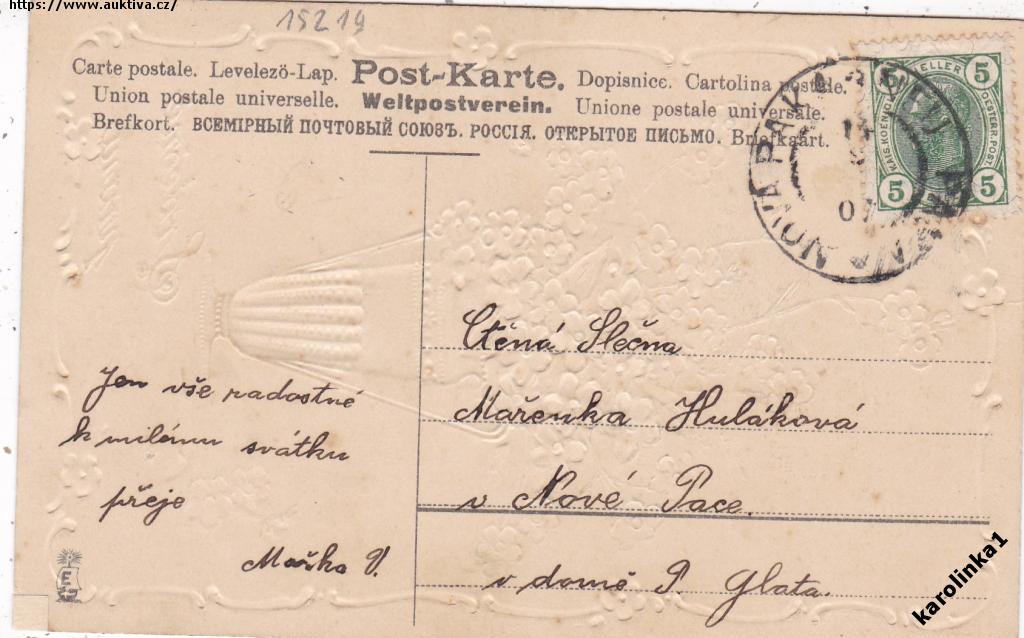 https://www.auktiva.cz/
15219
Carte postale. Levelezö-Lap. Post-Karte. Dopisnice. Cartolina postale.
Union postale universelle. Weltpostverein. Unione postale universale.
Brefkort. ВСЕМІРНЫЙ ПОЧТОВЫЙ СОЮЗЪ. РОССІЯ. ОТКРЫТОЕ ПИСЬМО. Briefkaart.
5 HELLER 5
KAIS. KOENIGL. OESTERR. POST.
5 5
NOVA PAKA
07
Ctěná Slečna
Mařenka Huláková
v Nové Pace.
v domě P. Glata.
Jen vše radostné
k milému svátku
přeje
Mařka V.
karolinka1